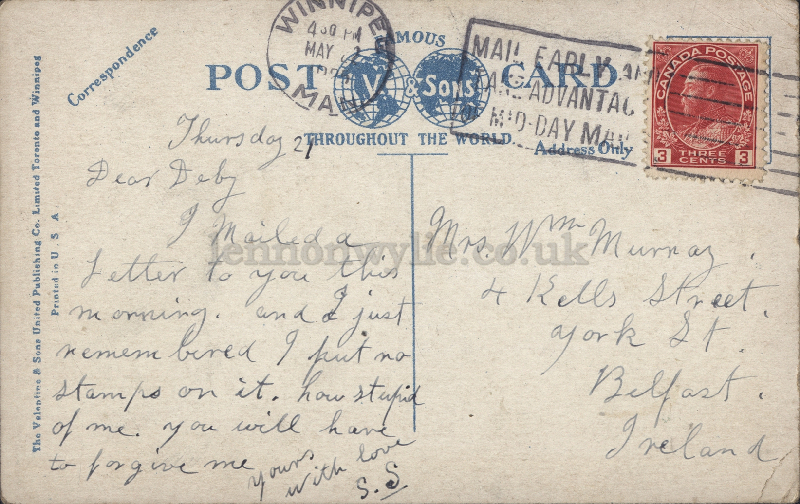 WINNIPEG
4 30 PM
MAY
MAN
MAIL EARLY
ADVANTAG
MID-DAY MAIL
CANADA POSTAGE
3 THREE CENTS 3
FAMOUS
POST CARD
V. & Sons
THROUGHOUT THE WORLD
Correspondence
Address Only
The Valentine & Sons United Publishing Co. Limited Toronto and Winnipeg
Printed in U. S. A.
Thursday 27
Dear Deby
I Mailed a
Letter to you this
morning. and I just
remembered I put no
stamps on it. how stupid
of me. you will have
to forgive me
yours
with love
S.S
Mrs. Wm Murray.
4 Kells Street.
York St.
Belfast.
Ireland
lennonwylie.co.uk